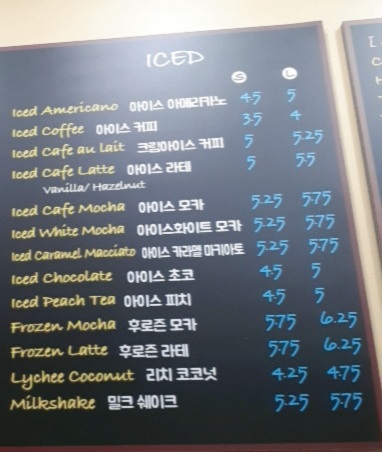 ICED
S L
Iced Americano 아이스 아메리카노 4.5 5
Iced Coffee 아이스 커피 3.5 4
Iced Cafe au lait 크림아이스 커피 5 5.25
Iced Cafe Latte 아이스 라테 5 5.5
Vanilla/Hazelnut
Iced Cafe Mocha 아이스 모카 5.25 5.75
Iced White Mocha 아이스화이트 모카 5.25 5.75
Iced Caramel Macciato 아이스 카라멜 마키아토 5.25 5.75
Iced Chocolate 아이스 초코 4.5 5
Iced Peach Tea 아이스 피치 4.5 5
Frozen Mocha 후로즌 모카 5.75 6.25
Frozen Latte 후로즌 라테 5.75 6.25
Lychee Coconut 리치 코코넛 4.25 4.75
Milkshake 밀크 쉐이크 5.25 5.75